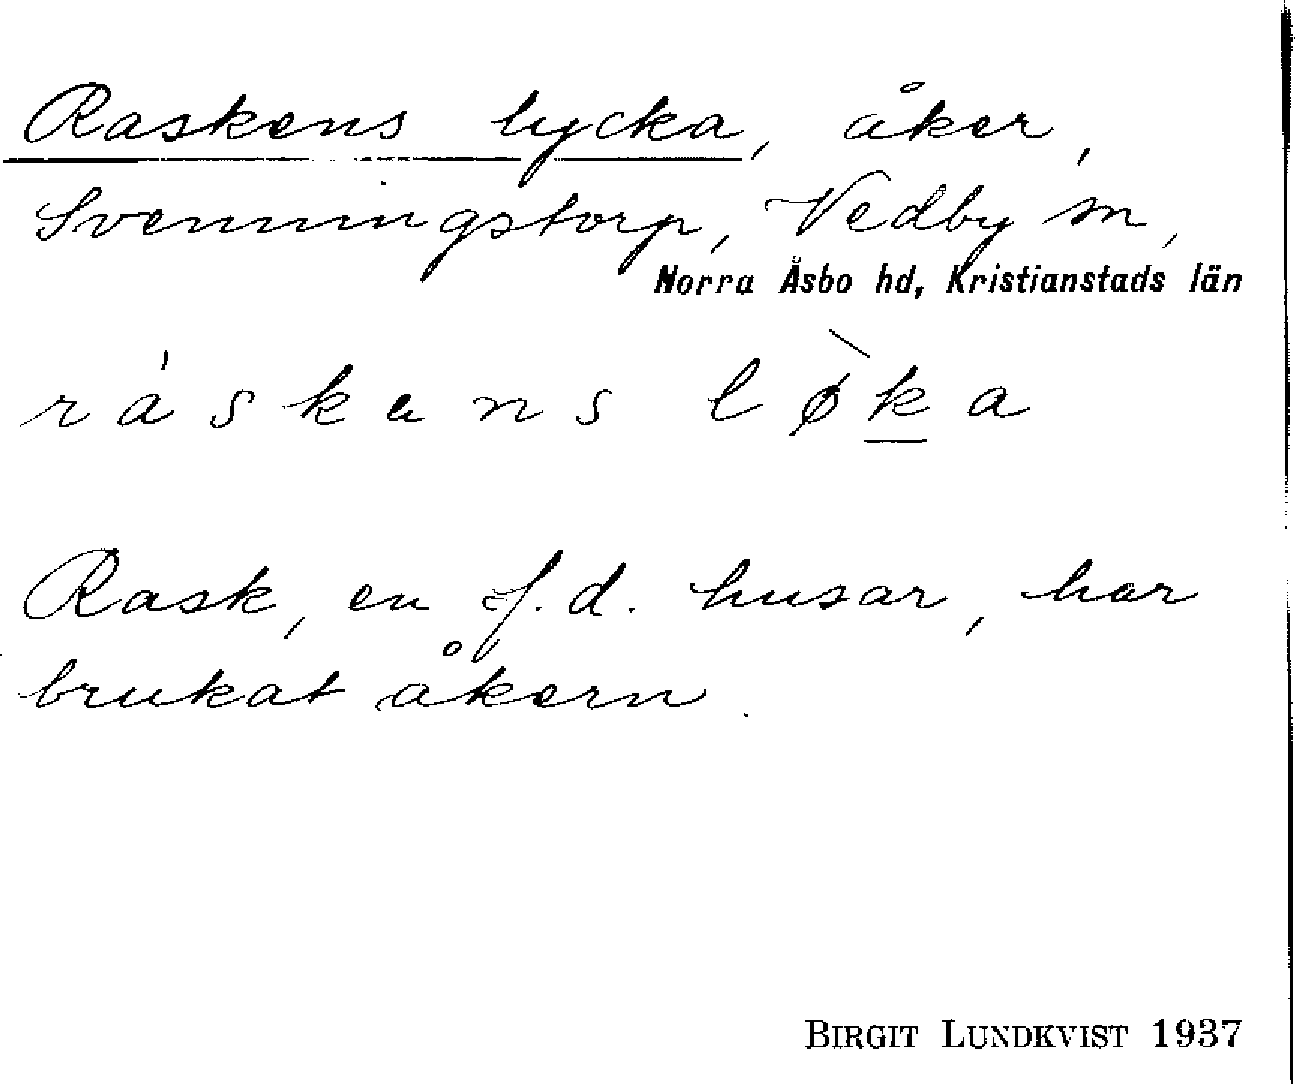 Raskens lycka, åker,
Svenningstorp, Vedby sn,
Norra Åsbo hd, Kristianstads län
ráskans lø̀ka
Rask, en f.d. husar, har
brukat åkern.
BIRGIT LUNDKVIST 1937